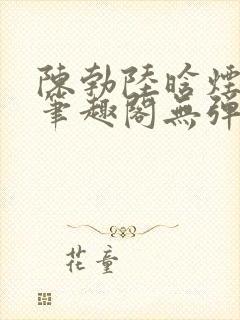 陳勃陸晗煙
筆趣閣無彈
花童